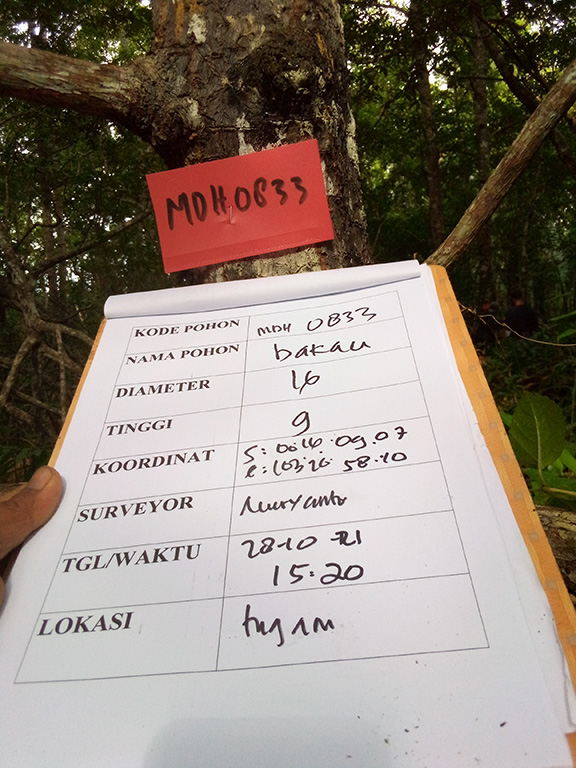 MDH 0833
KODE POHON MDH 0833
NAMA POHON bakau
DIAMETER 16
TINGGI 9
KOORDINAT S: 00.16.09.07
e: 103.26.58.10
SURVEYOR Nuryanto
TGL/WAKTU 28-10-21
15:20
LOKASI